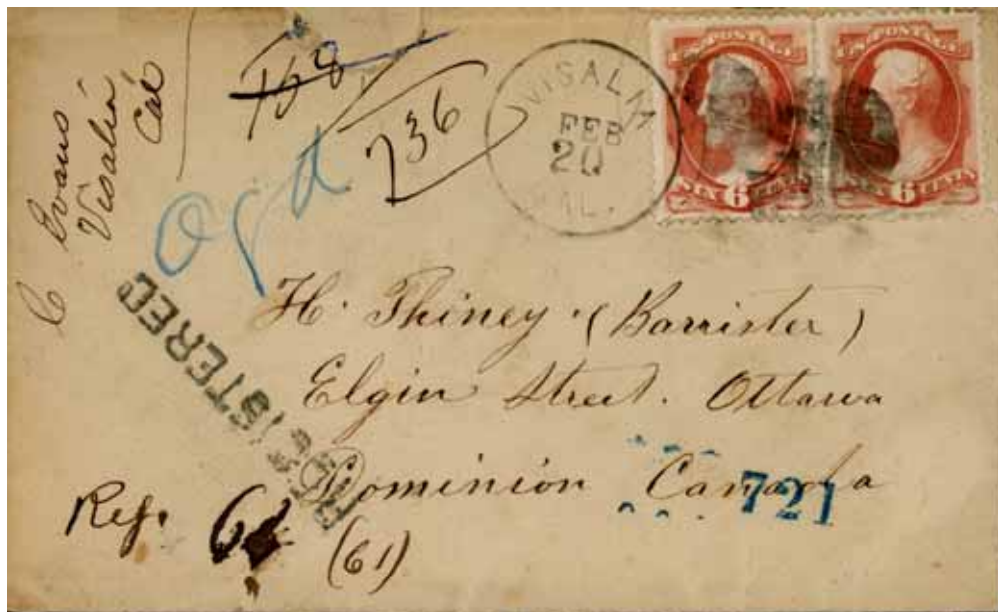 C Evans
Visalia
Cal
158
236
VISALIA
FEB
20
CAL.
U.S. POSTAGE
SIX 6 CENTS
U.S. POSTAGE
SIX 6 CENTS
REGISTERED
H. Phiney (Barrister)
Elgin Street. Ottawa
Dominion Canada
721
Reg.
(61)